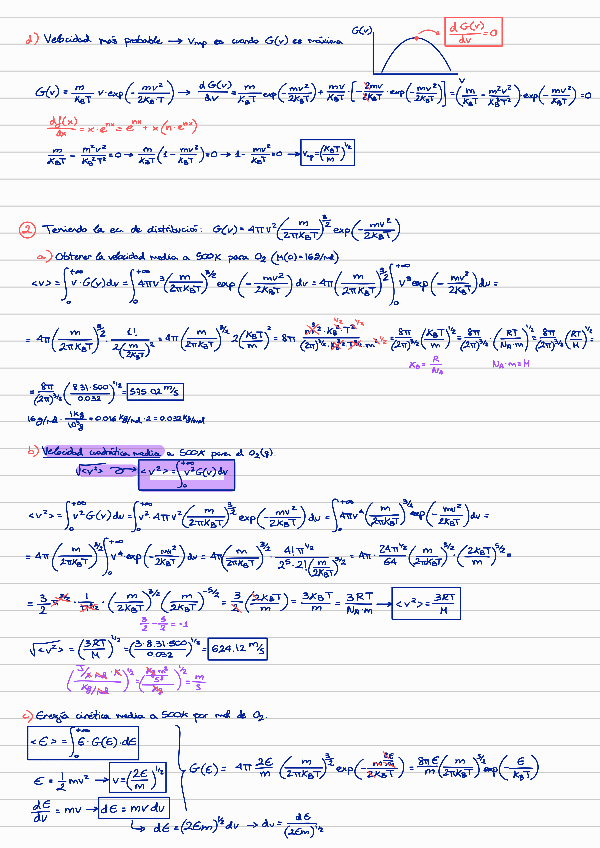 d) Velocidad más probable → Vmp es cuando G(v) es máxima
G(v)
dG(v)/dv = 0
v
G(v) = m/KBT v·exp(-mv²/2KBT) → dG(v)/dv = m/KBT exp(-mv²/2KBT) + mv/KBT·[-2mv/2KBT·exp(-mv²/2KBT)] = (m/KBT - m²v²/KB²T²)·exp(-mv²/2KBT) = 0
df(x)/dx = x·e^nx = e^nx + x(n·e^nx)
m/KBT - m²v²/KB²T² = 0 → m/KBT(1 - mv²/KBT) = 0 → 1 - mv²/KBT = 0 → Vmp = (KBT/m)^1/2
2 Teniendo la ec. de distribución: G(v) = 4πv²(m/2πKBT)^3/2 exp(-mv²/2KBT)
a) Obtener la velocidad media a 500K para O2 (M(O)=16g/mol)
<v> = ∫0^+∞ v·G(v)dv = ∫0^+∞ 4πv³(m/2πKBT)^3/2 exp(-mv²/2KBT) dv = 4π(m/2πKBT)^3/2 ∫0^+∞ v³exp(-mv²/2KBT)dv =
= 4π(m/2πKBT)^3/2 · 1!/2(m/2KBT)² = 4π(m/2πKBT)^3/2 2(KBT/m)² = 8π m^3/2·KB²·T²/(2π)^3/2·KB^3/2·T^3/2·m² = 8π/(2π)^3/2 (KBT/m)^1/2 = 8π/(2π)^3/2·(RT/NA·m)^1/2 = 8π/(2π)^3/2 (RT/M)^1/2 =
KB = R/NA NA·m = M
= 8π/(2π)^3/2 (8.31·500/0.032)^1/2 = 575.02 m/s
16 g/mol · 1Kg/10³g = 0.016 Kg/mol · 2 = 0.032 Kg/mol
b) Velocidad cuadrática media a 500K para el O2(g)
√<v²> → <v²> = ∫0^+∞ v²G(v)dv
<v²> = ∫0^+∞ v²G(v)dv = ∫0^+∞ v²·4πv²(m/2πKBT)^3/2 exp(-mv²/2KBT)dv = ∫0^+∞ 4πv⁴(m/2πKBT)^3/2 exp(-mv²/2KBT)dv =
= 4π(m/2πKBT)^3/2 ∫0^+∞ v⁴·exp(-mv²/2KBT)dv = 4π(m/2πKBT)^3/2 · 4!π^1/2/2⁵·2!(m/2KBT)^5/2 = 4π·24π^1/2/64 (m/2πKBT)^3/2·(2KBT/m)^5/2 =
= 3/2 π^3/2 · 1/π^3/2 · (m/2KBT)^3/2 (m/2KBT)^-5/2 = 3/2 (2KBT/m) = 3KBT/m = 3RT/NA·m → <v²> = 3RT/M
3/2 - 5/2 = -1
√<v²> = (3RT/M)^1/2 = (3·8.31·500/0.032)^1/2 = 624.12 m/s
(J/K·mol·K/Kg/mol)^1/2 = (Kg m²/s²/Kg)^1/2 = m/s
c) Energía cinética media a 500K por mol de O2.
<E> = ∫0^+∞ E·G(E)·dE
E = 1/2 mv² → v = (2E/m)^1/2
G(E) = 4π 2E/m (m/2πKBT)^3/2 exp(-m 2E/m/2KBT) = 8πE/m(m/2πKBT)^3/2 exp(-E/KBT)
dE/dv = mv → dE = mv dv
↳ dE = (2Em)^1/2 dv → dv = dE/(2Em)^1/2